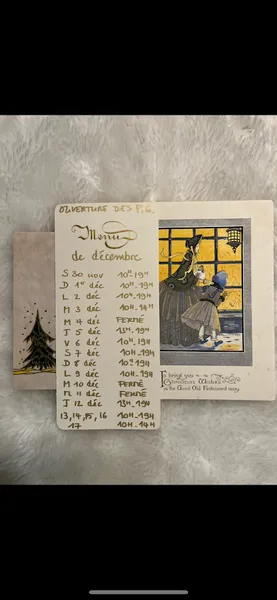 OUVERTURE DES P.G.
Menu
de décembre
S 30 nov 10H-19H
D 1er déc 10H-19H
L 2 déc 10H-19H
M 3 déc 10H-14H
M 4 déc FERMÉ
J 5 déc 13H-19H
V 6 déc 10H-19H
S 7 déc 10H-19H
D 8 déc 10H-19H
L 9 déc 10H-19H
M 10 déc FERMÉ
M 11 déc FERMÉ
J 12 déc 13H-19H
13, 14, 15, 16 10H-19H
17 10H-14H
To bring you
Christmas Wishes
in the Good Old Fashioned way.